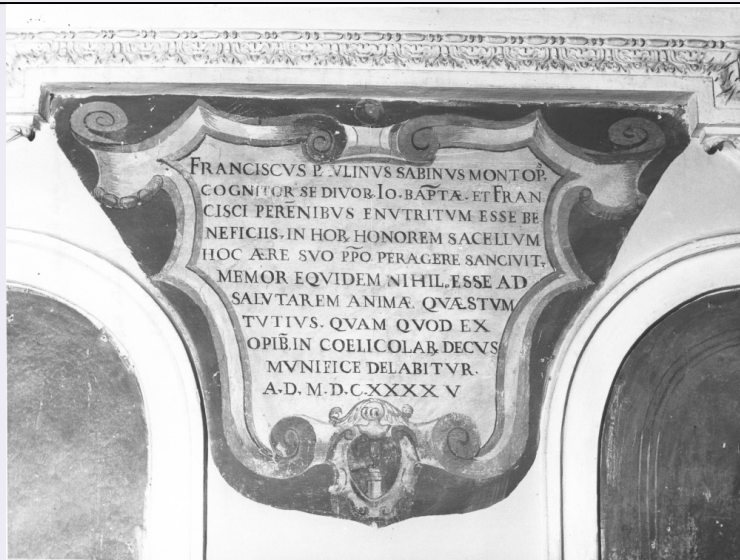 FRANCISCVS PAVLINVS SABINVS MONTOP.
COGNITOR SE DIVOR. IO. BAPT̃Æ. ET FRAN
CISCI PERẼNIBVS ENVTRITVM ESSE BE
NEFICIIS, IN HOR. HONOREM SACELLVM
HOC ÆRE SVO PP̃O PERAGERE SANCIVIT,
MEMOR EQVIDEM NIHIL ESSE AD
SALVTAREM ANIMÆ QVÆSTVM
TVTIVS. QVAM QVOD EX
OPIB̃. IN COELICOLAR. DECVS
MVNIFICE DELABITVR.
A. D. M. D. C. XXXX V